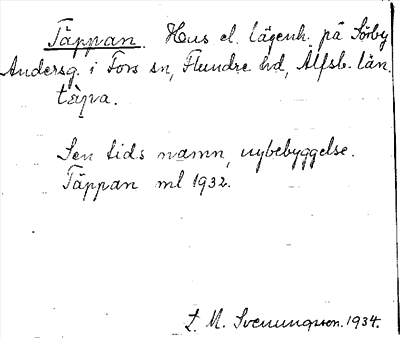 Täppan. Hus el. lägenh. på Sörby
Andersg. i Fors sn, Flundre hd, Älfsb. län.
tàpa.
Sen tids namn, nybebyggelse.
Täppan ml 1932.
L. M. Svenungsson. 1934.